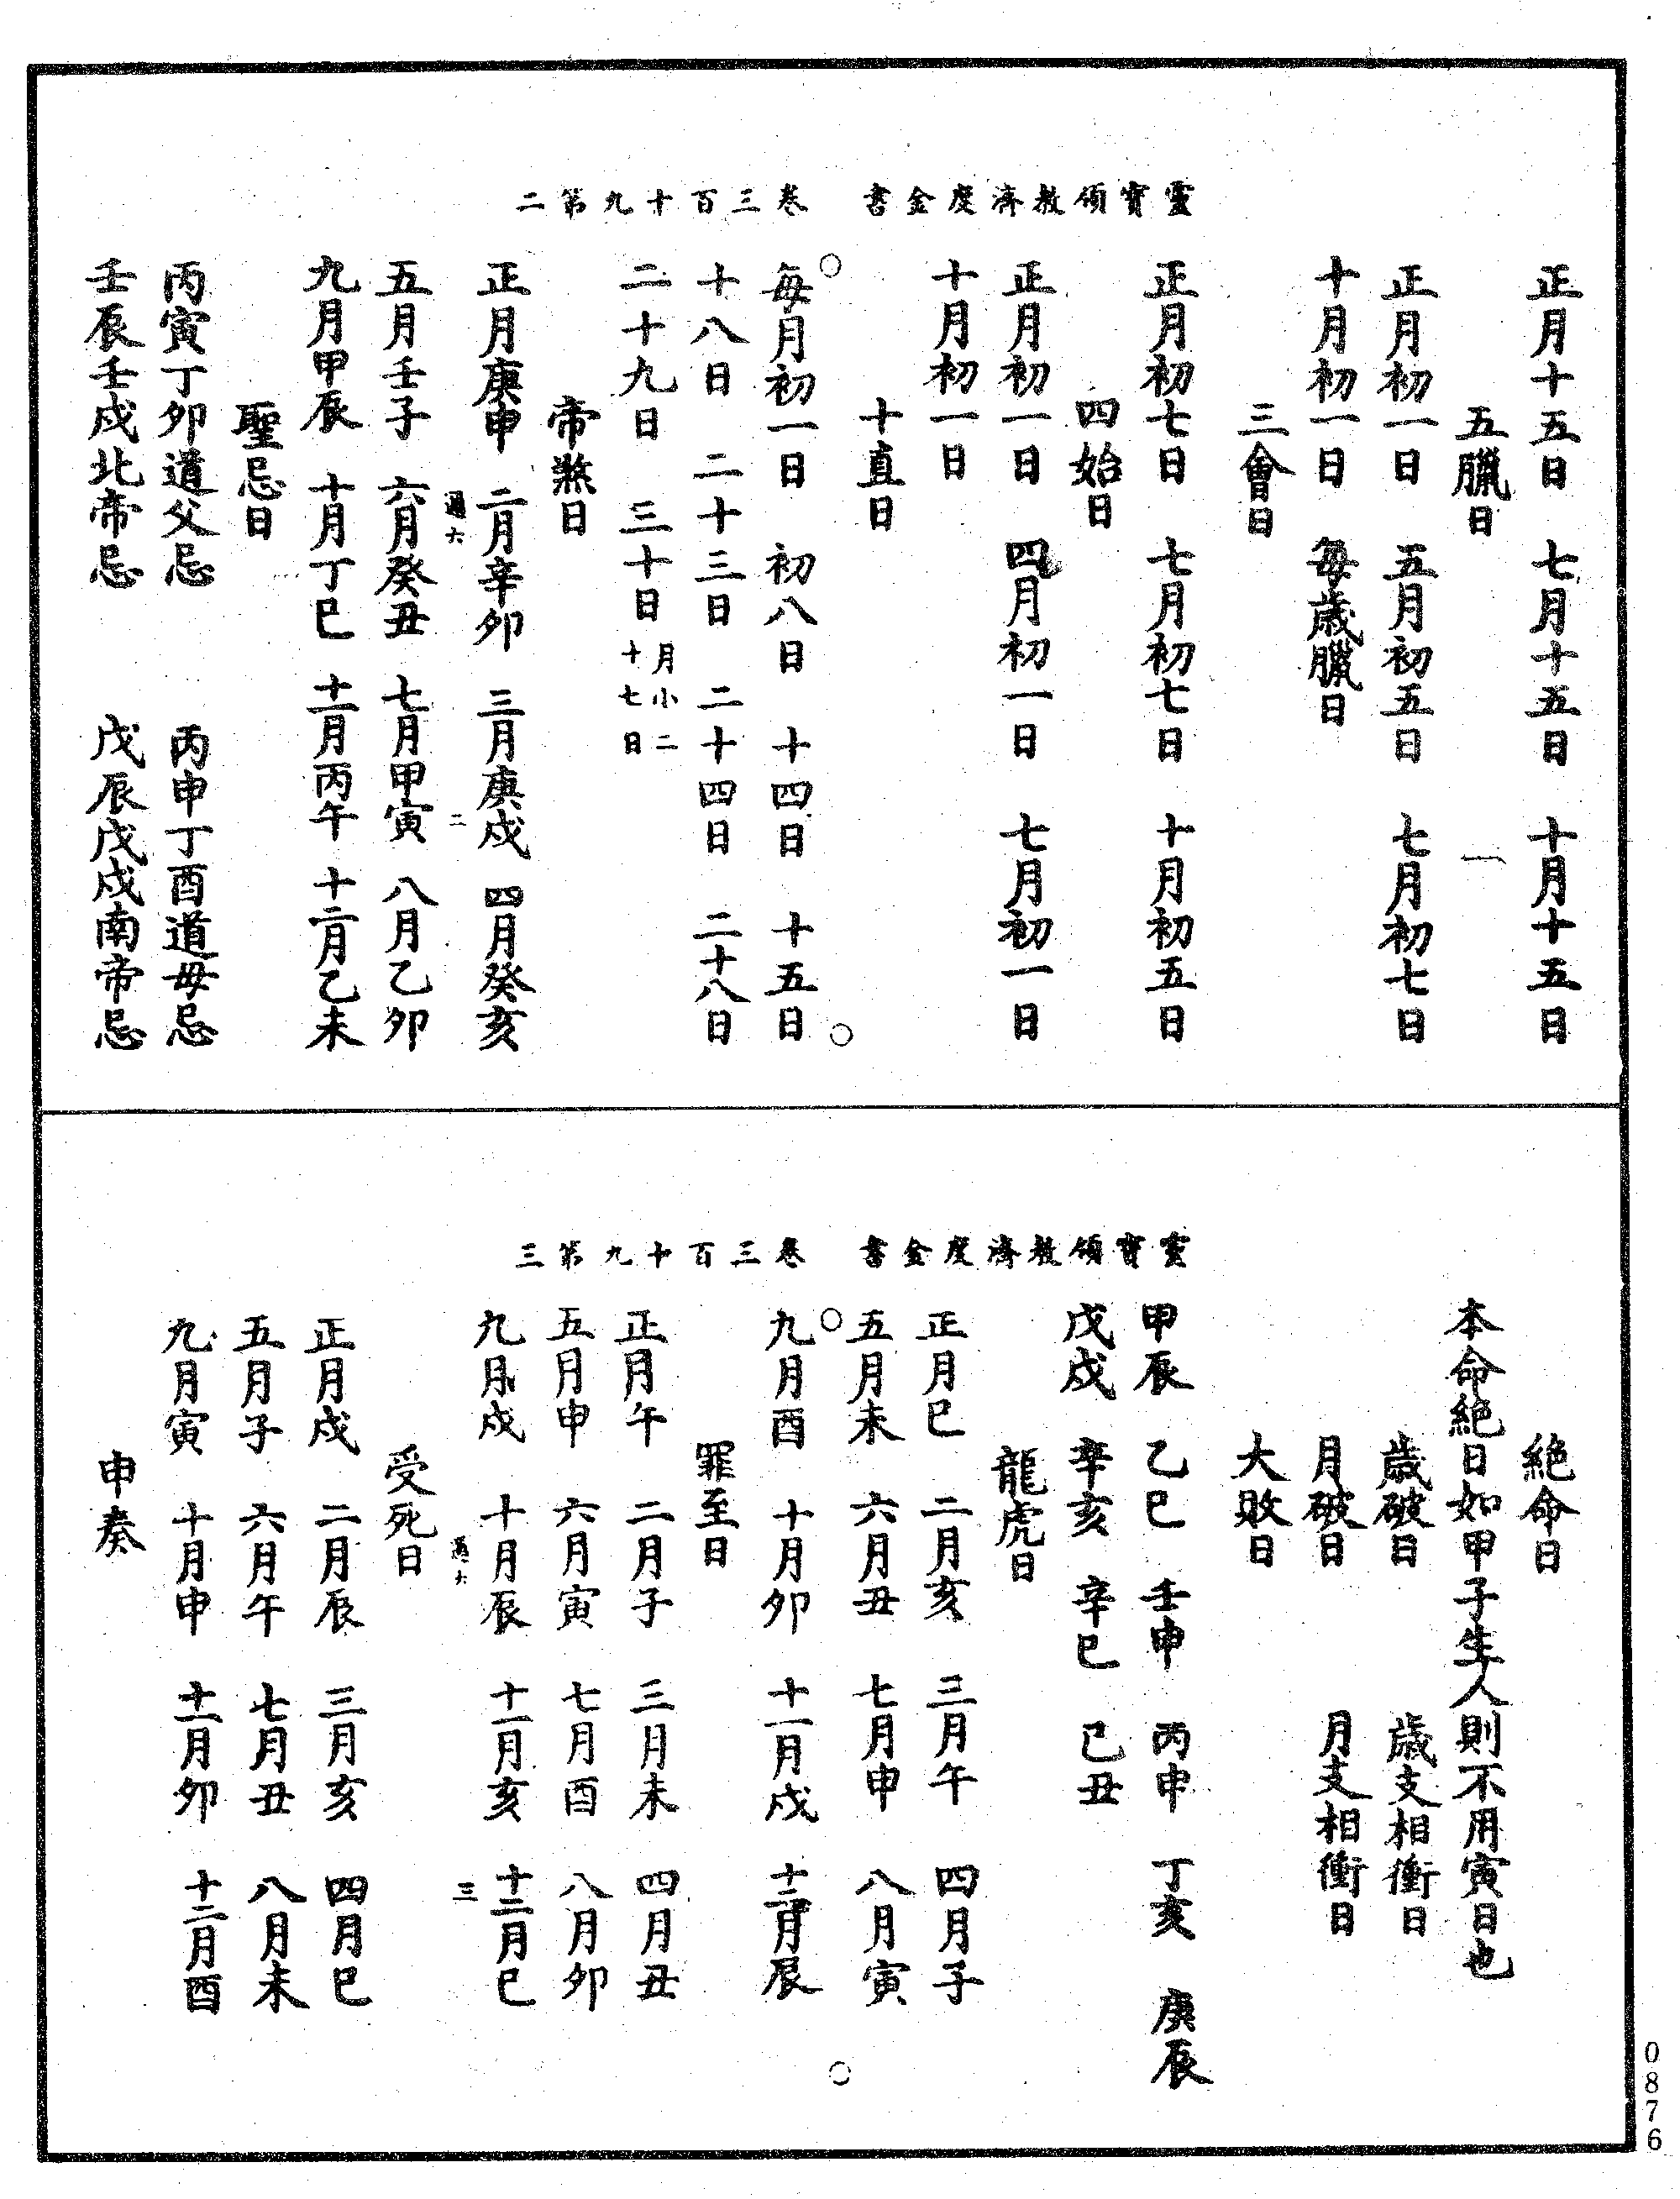 靈寶領教濟度金書　卷三百十九第二
正月十五日　七月十五日　十月十五日
五臘日　一
正月初一日　五月初五日　七月初七日
十月初一日　每歲臘日
三會日
正月初七日　七月初七日　十月初五日
四始日
正月初一日　四月初一日　七月初一日
十月初一日
十直日
每月初一日　初八日　十四日　十五日
十八日　二十三日　二十四日　二十八日
二十九日　三十日月小二十七日
帝煞日
正月庚申　二月辛卯　三月庚戌　四月癸亥
過六　二
五月壬子　六月癸丑　七月甲寅　八月乙卯
九月甲辰　十月丁巳　十一月丙午　十二月乙未
聖忌日
丙寅丁卯道父忌　丙申丁酉道母忌
壬辰壬戌北帝忌　戊辰戊戌南帝忌
靈寶領教濟度金書　卷三百十九第三
絕命日
本命絕日如甲子生人則不用寅日也
歲破日　歲支相衝日
月破日　月支相衝日
大敗日
甲辰　乙巳　壬申　丙申　丁亥　庚辰
戊戌　辛亥　辛巳　己丑
龍虎日
正月巳　二月亥　三月午　四月子
五月未　六月丑　七月申　八月寅
九月酉　十月卯　十一月戌　十二月辰
罪至日
正月午　二月子　三月未　四月丑
五月申　六月寅　七月酉　八月卯
九月戌　十月辰　十一月亥　十二月巳
過六　三
受死日
正月戌　二月辰　三月亥　四月巳
五月子　六月午　七月丑　八月未
九月寅　十月申　十一月卯　十二月酉
申奏
0876